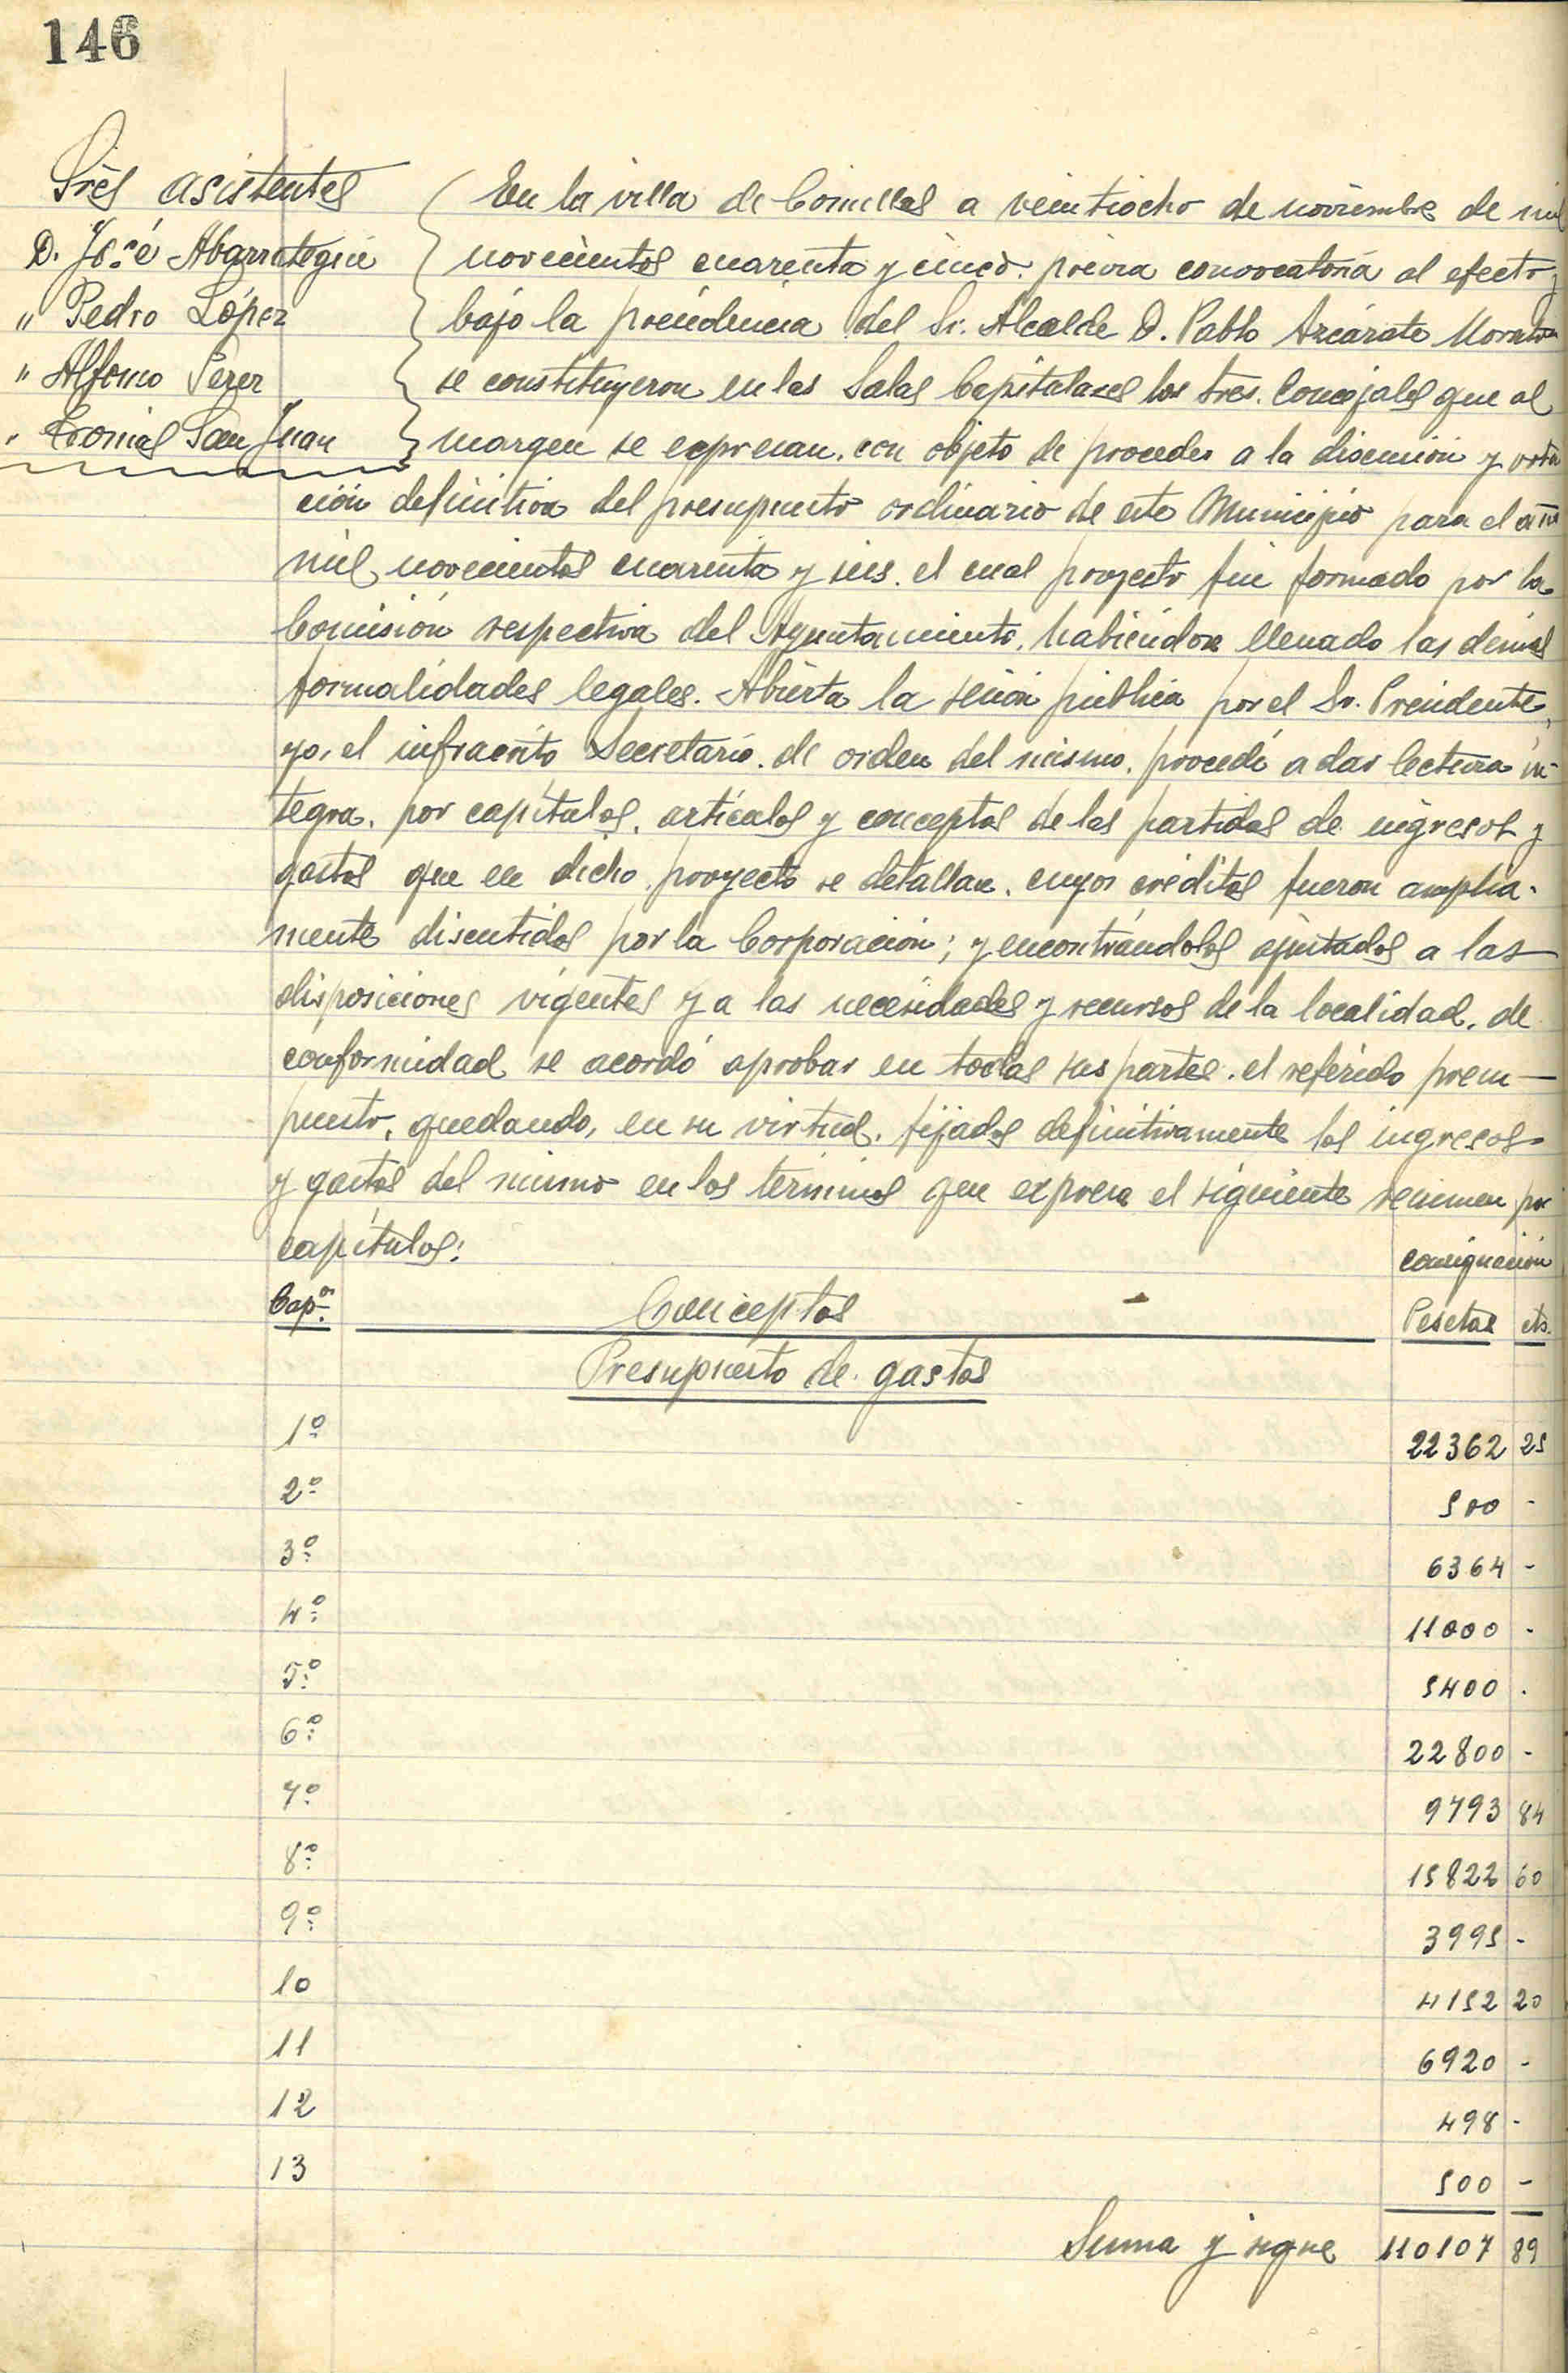 146
Sres asistentes
D. José Abarrategui
" Pedro López
" Alfonso Perez
" San Juan
En la villa de Comillas a veintiocho de noviembre de mil
novecientos cuarenta y cinco. previa convocatoria al efecto y
bajo la presidencia del Sr. Alcalde D. Pablo Azcárate
se constituyeron en las Salas Capitulares los Sres. Concejales que al
margen se expresan. con objeto de proceder a la discusión y vota
ción definitiva del presupuesto ordinario de este Municipio para el año
mil novecientos cuarenta y seis. el cual proyecto fue formado por la
Comisión respectiva del Ayuntamiento. habiéndose llenado las demás
formalidades legales. Abierta la sesión pública por el Sr. Presidente,
yo, el infrascrito Secretario. de orden del mismo. procedí a dar lectura ín-
tegra. por capítulos. artículos y conceptos de las partidas de ingresos y
gastos que en dicho proyecto se detallan. cuyos créditos fueron amplia-
mente discutidos por la Corporación; y encontrándolos ajustados a las
disposiciones vigentes y a las necesidades y recursos de la localidad. de
conformidad se acordó aprobar en todas sus partes. el referido presu-
puesto, quedando, en su virtud. fijados definitivamente los ingresos
y gastos del mismo en los términos que expresa el siguiente resumen por
capítulos:
Consignación
Cap.os Conceptos Pesetas cts.
Presupuesto de gastos
1º 22362 25
2º 500 -
3º 6364 -
4º 11000 -
5º 5400 .
6º 22800 -
7º 9793 84
8º 15822 60
9º 3995 -
10 4152 20
11 6920 -
12 498 -
13 500 -
Suma y sigue 110107 89